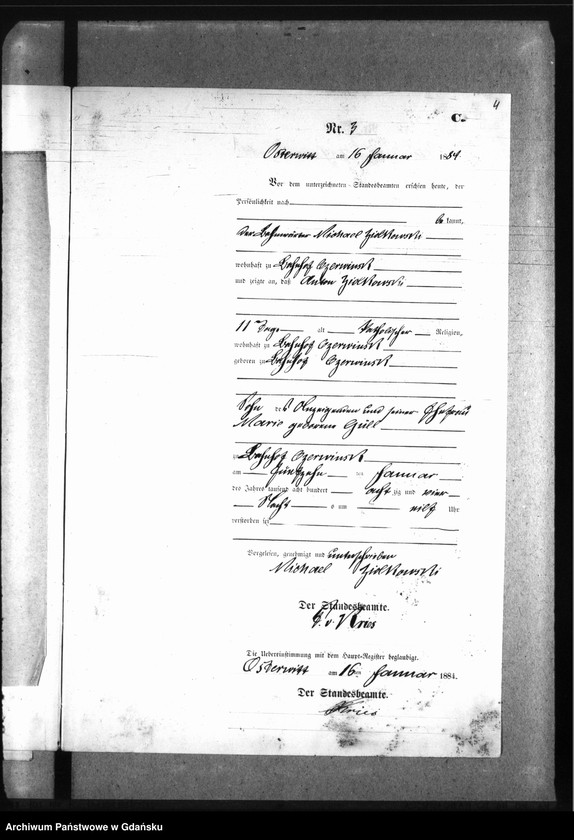 4
C.
Nr. 3
Osterwitt am 16 Januar 1884
Vor dem unterzeichneten Standesbeamten erschien heute, der
Persönlichkeit nach
be kannt,
der Bahnwärter Michael Zidkowski
wohnhaft zu Bahnhof Czerwinsk
und zeigte an, daß Anton Zidkowski
11 Tage alt Katholischer Religion,
wohnhaft zu Bahnhof Czerwinsk
geboren zu Bahnhof Czerwinsk
Sohn des Anzeigenden und seiner Ehefrau
Marie geborene
zu Bahnhof Czerwinsk
am fünfzehn ten Januar
des Jahres tausend acht hundert acht zig und vier
Nacht s um elf Uhr
verstorben sei
Vorgelesen, genehmigt und unterschrieben
Michael Zidkowski
Der Standesbeamte.
v. Kries
Die Uebereinstimmung mit dem Haupt-Register beglaubigt.
Osterwitt am 16ten Januar 1884.
Der Standesbeamte.
Kries
Archiwum Państwowe w Gdańsku